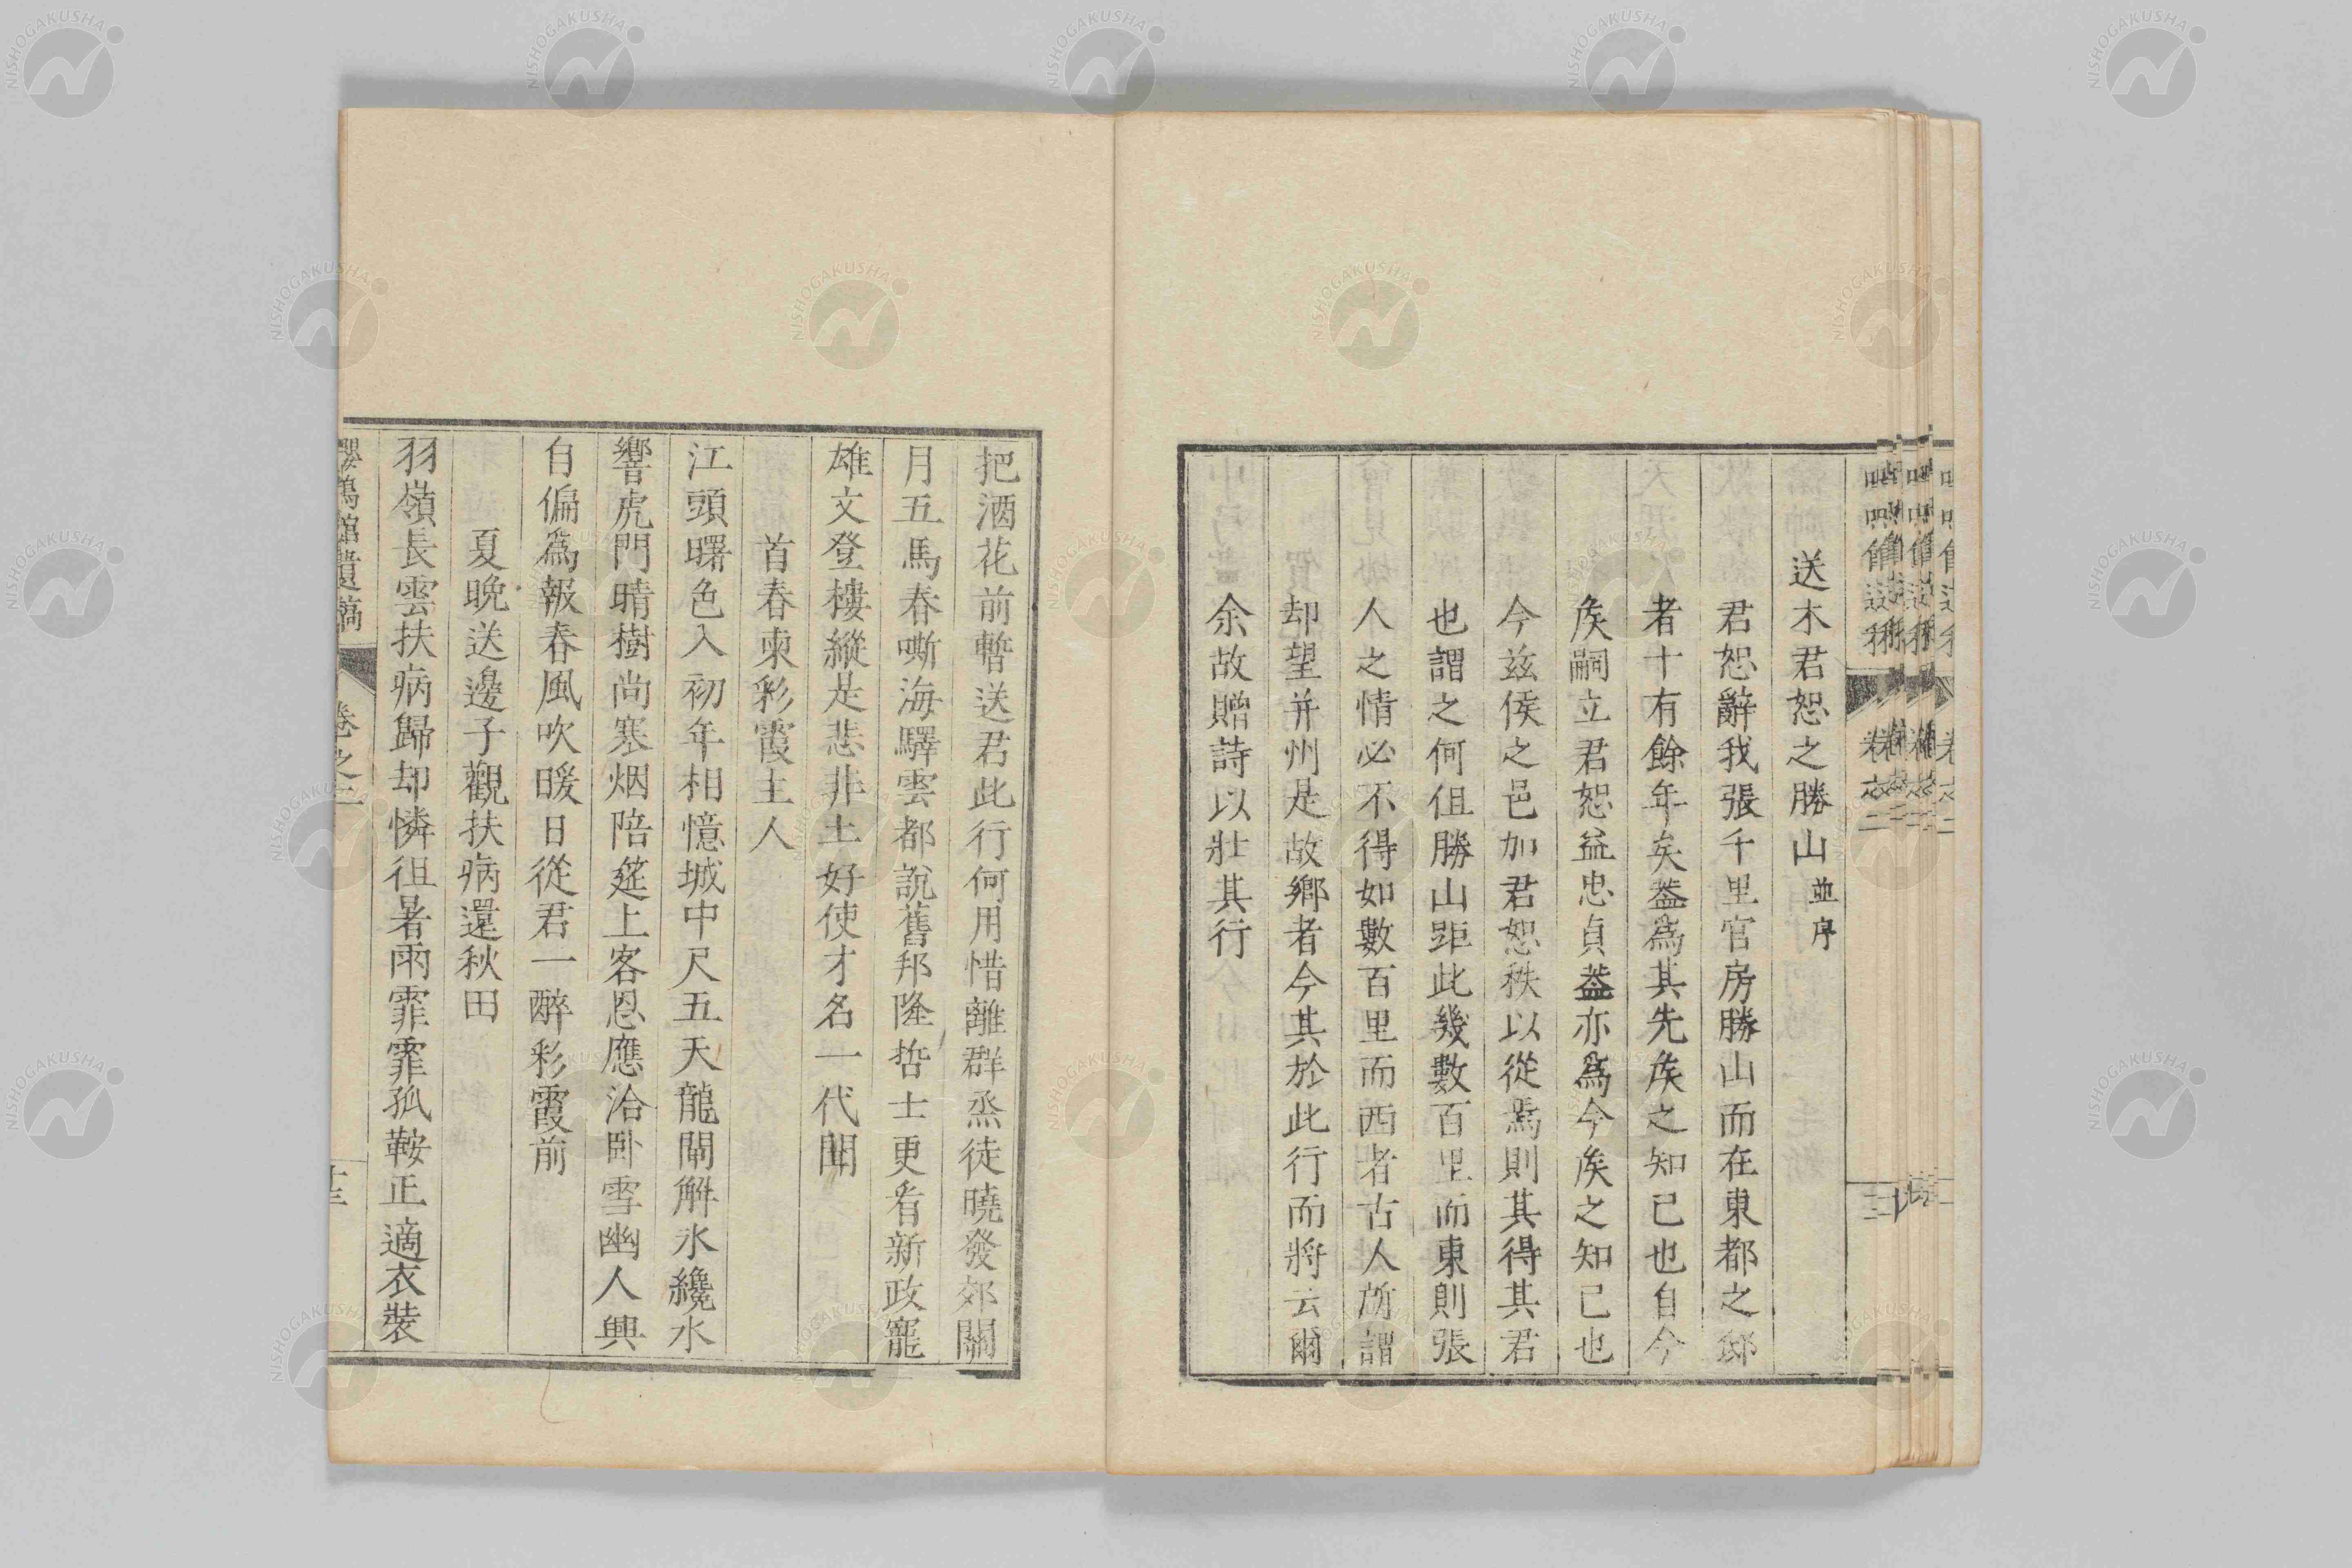 送木君恕之勝山 並序
君恕辭我張千里官房勝山而在東都之邸
者十有餘年矣蓋爲其先矦之知已也自今
矦嗣立君恕益忠貞蓋亦爲今矦之知已也
今兹矦之邑加君恕秩以從焉則其得其君
也謂之何但勝山距此幾數百里而東則張
人之情必不得如數百里而西者古人所謂
却望并州是故鄉者今其於此行而將云爾
余故贈詩以壯其行
把酒花前暫送君此行何用惜離群烝徒曉發郊關
月五馬春嘶海驛雲都說舊邦隆哲士更看新政寵
雄文登樓縱是悲非土好使才名一代聞
首春柬彩霞主人
江頭曙色入初年相憶城中尺五天龍閘解氷纔水
響虎門晴樹尚塞烟陪筵上客恩應洽卧雪幽人興
自偏爲報春風吹暖日從君一醉彩霞前
夏晚送邊子觀扶病還秋田
羽嶺長雲扶病歸却憐徂暑雨霏霏孤鞍正適衣裝
館遺稿 卷之二 十三
NISHOGAKUSHA